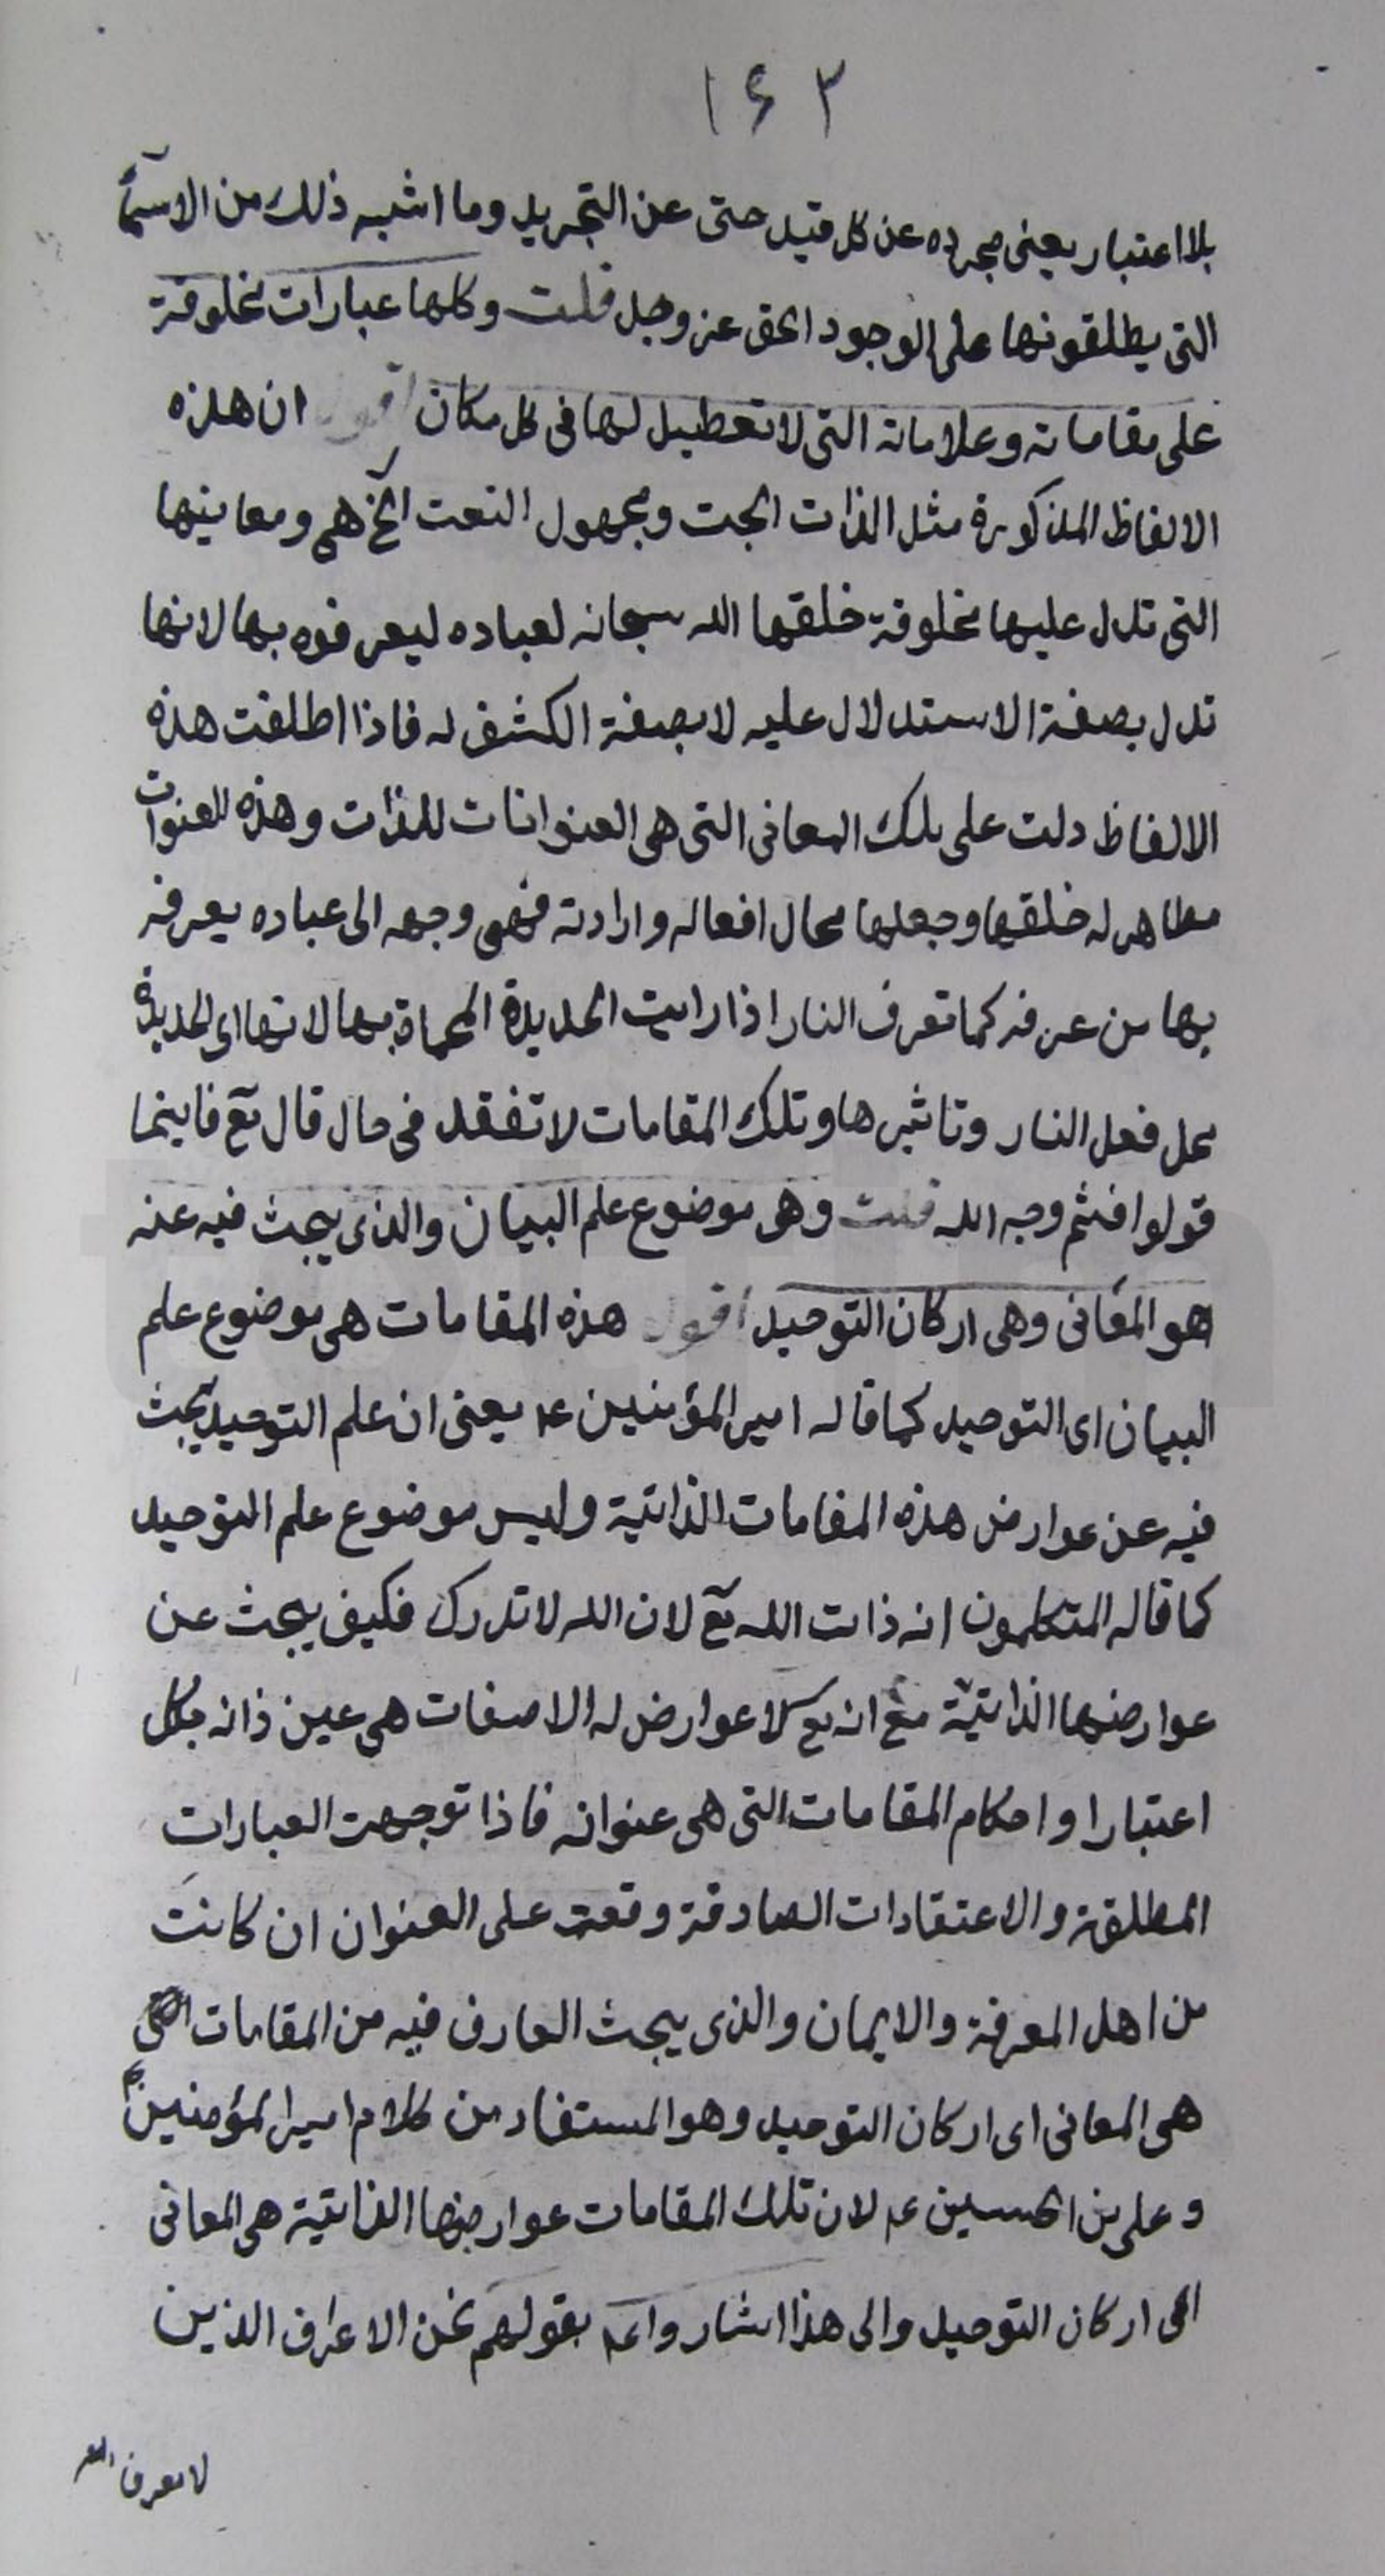 ١٤٣
بلا اعتبار يعنى مجرده عن كل قيد حتى عن التجريد وما اشبه ذلك من الاسمآء
التى يطلقونها على الوجود الحق عز وجل قلت وكلها عبارات مخلوقة
على مقاماته وعلاماته التى لا تعطيل لها فى كل مكان اقول ان هذه
الالفاظ المذكورة مثل الذات البحت ومجهول النعت الخ هى ومعانيها
التى تدل عليها مخلوقة خلقها الله سبحانه لعباده ليعرفوه بها لانها
تدل بصفة الاستدلال عليه لا بصفة الكشف له فاذا اطلقت هذه
الالفاظ دلت على تلك المعانى التى هى العنوانات للذات وهذه العنوانات
مظاهر له خلقها وجعلها محال افعاله وارادته فهى وجهه الى عباده يعرفه
بها من عرفه كما تعرف النار اذا رايت الحديدة المحماة بها لانها اى الحديدة
محل فعل النار وتاثيرها وتلك المقامات لا تفقد فى حال قال تع فاينما
تولوا فثم وجه الله قلت وهى موضوع علم البيان والذى يبحث فيه عنه
هو المعانى وهى اركان التوحيد اقول هذه المقامات هى موضوع علم
البيان اى التوحيد كما قاله امير المؤمنين عم يعنى ان علم التوحيد يبحث
فيه عن عوارض هذه المقامات الذاتية وليس موضوع علم التوحيد
كما قاله المتكلمون انه ذات الله تع لان الله لا تدرك فكيف يبحث عن
عوارضها الذاتية مع انه تع لا عوارض له الا صفات هى عين ذاته بكل
اعتبار او احكام المقامات التى هى عنوانه فاذا توجهت العبارات
المطلقة والاعتقادات الصادقة وقعت على العنوان ان كانت
من اهل المعرفة والايمان والذى يبحث العارف فيه من المقامات التى
هى المعانى اى اركان التوحيد وهو المستفاد من كلام امير المؤمنين عم
وعلى بن الحسين عم لان تلك المقامات عوارضها الذاتية هى المعانى
اى اركان التوحيد والى هذا اشاروا عم بقولهم نحن الاعراف الذين
لا يعرف الله